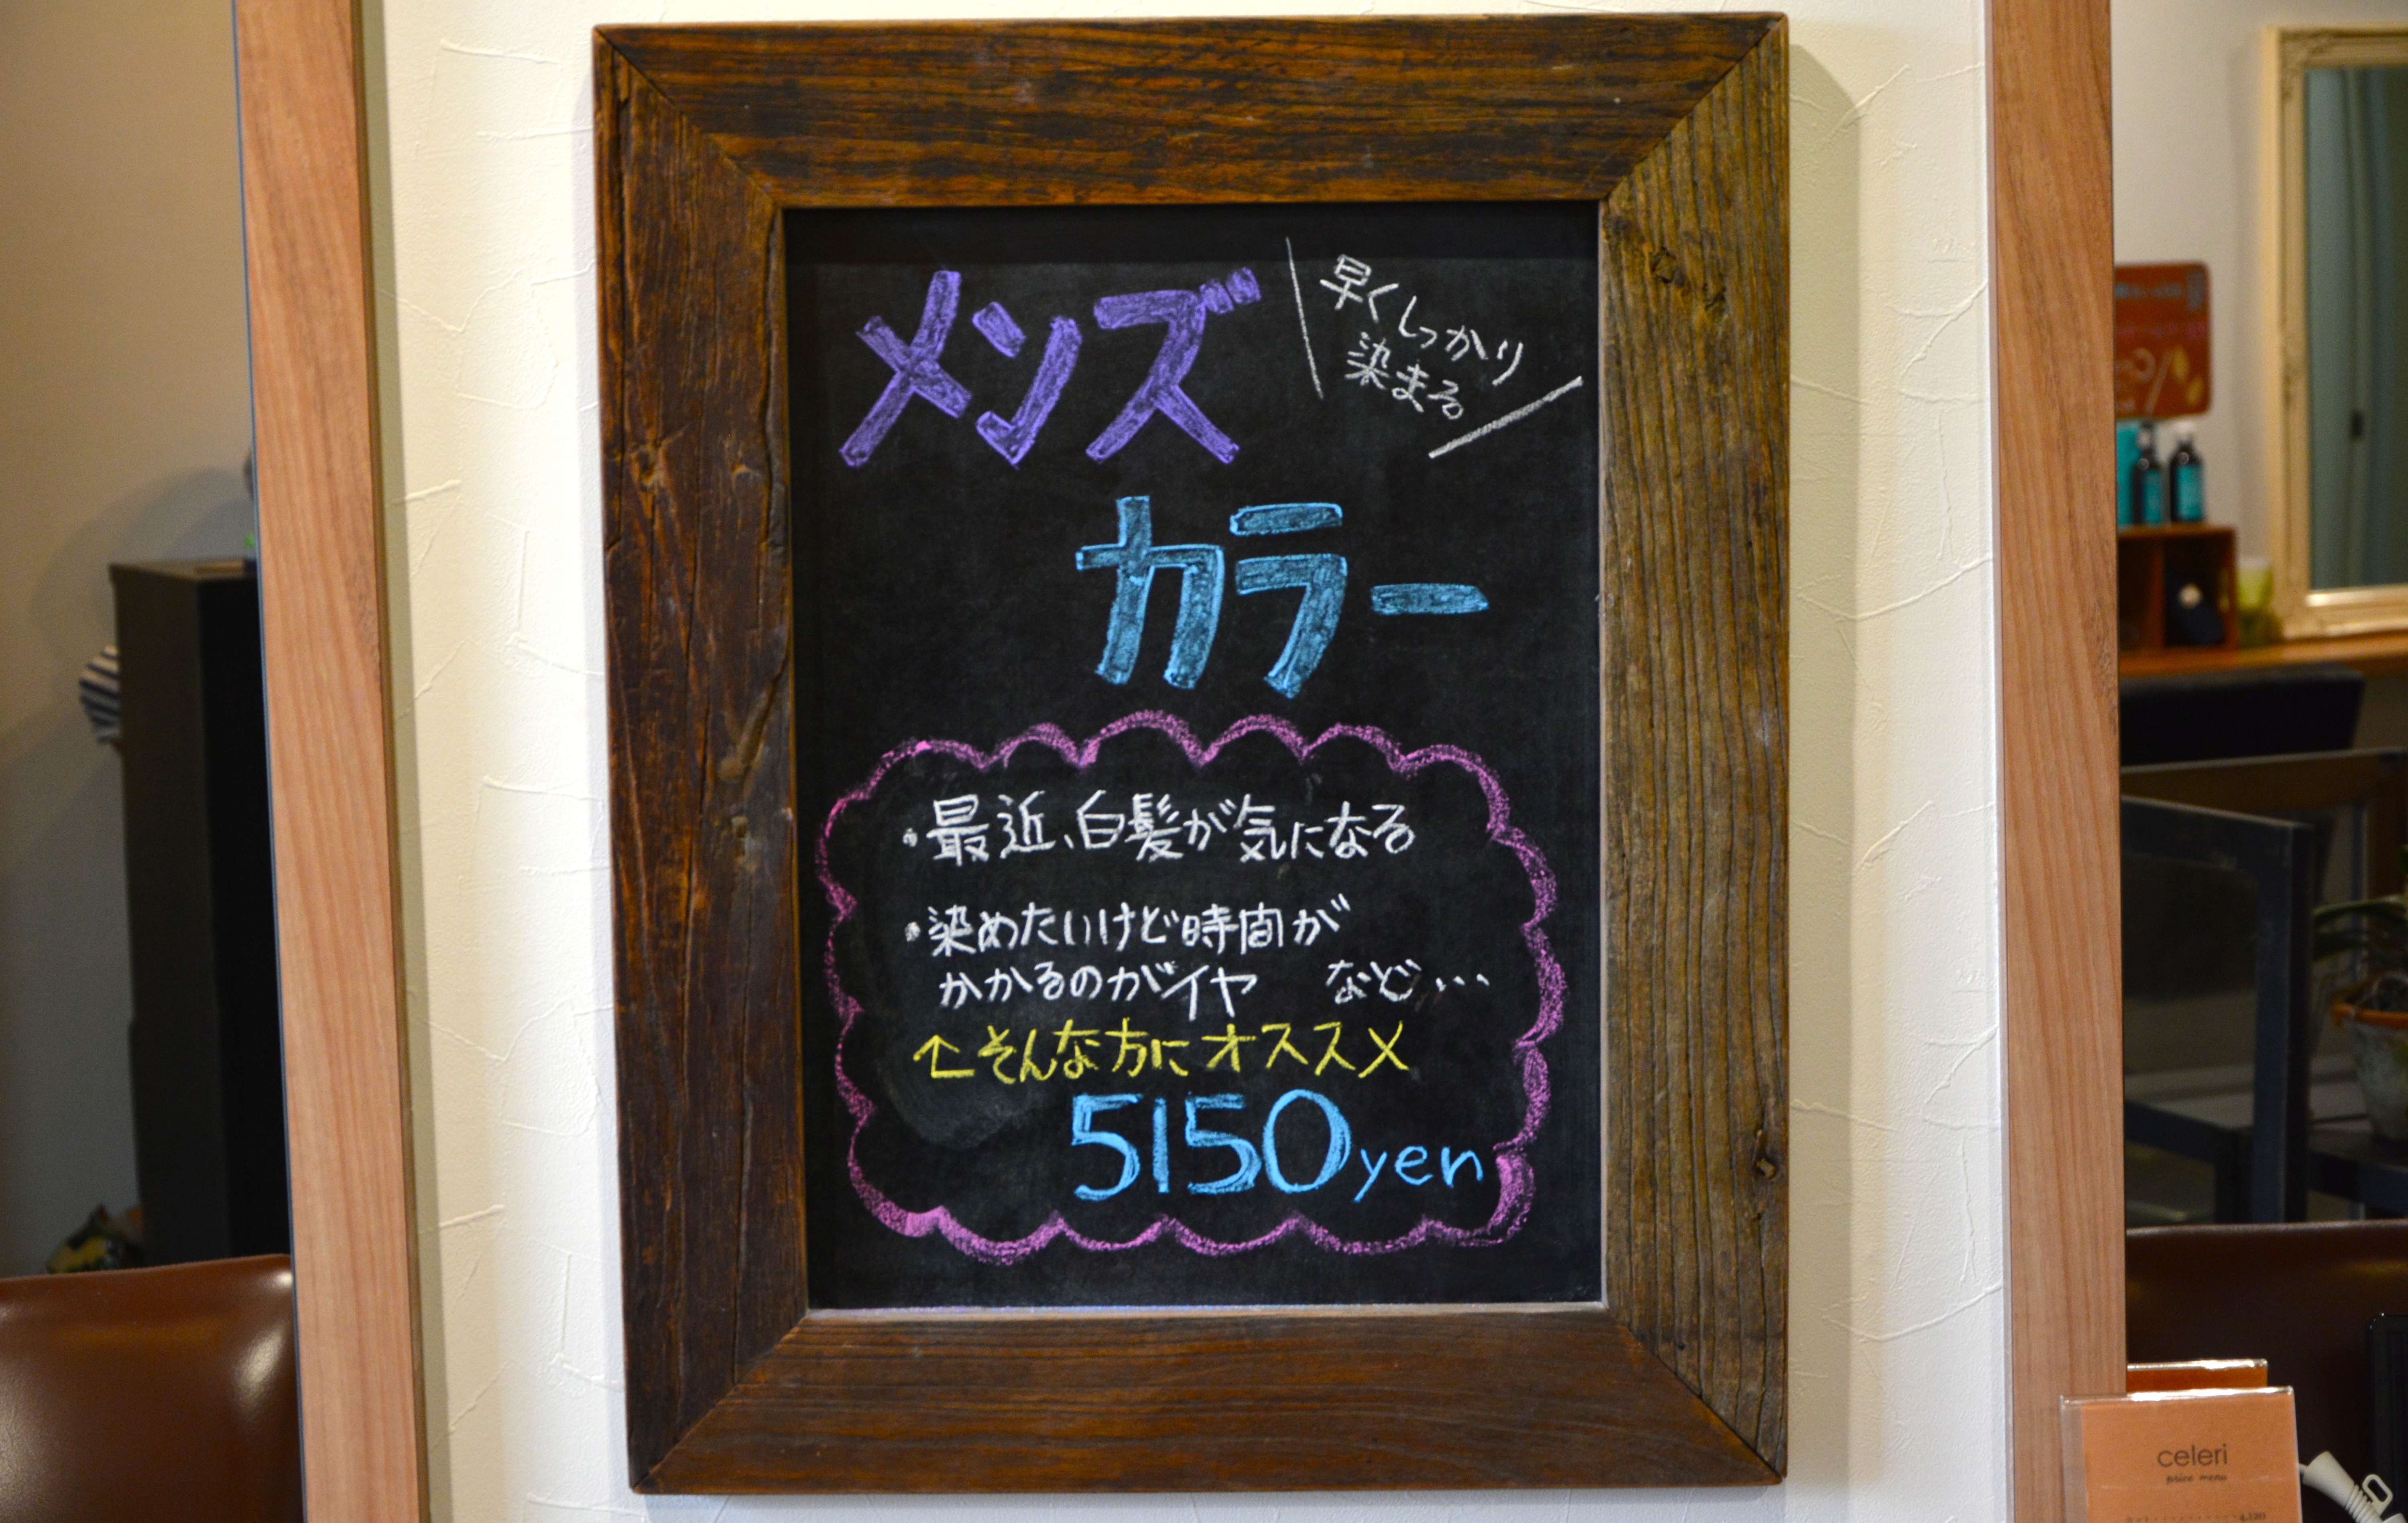 メンズ
早くしっかり
染まる
カラー
・最近、白髪が気になる
・染めたいけど時間が
かかるのがイヤ　など…
↑そんな方にオススメ
5150yen
celeri
price menu